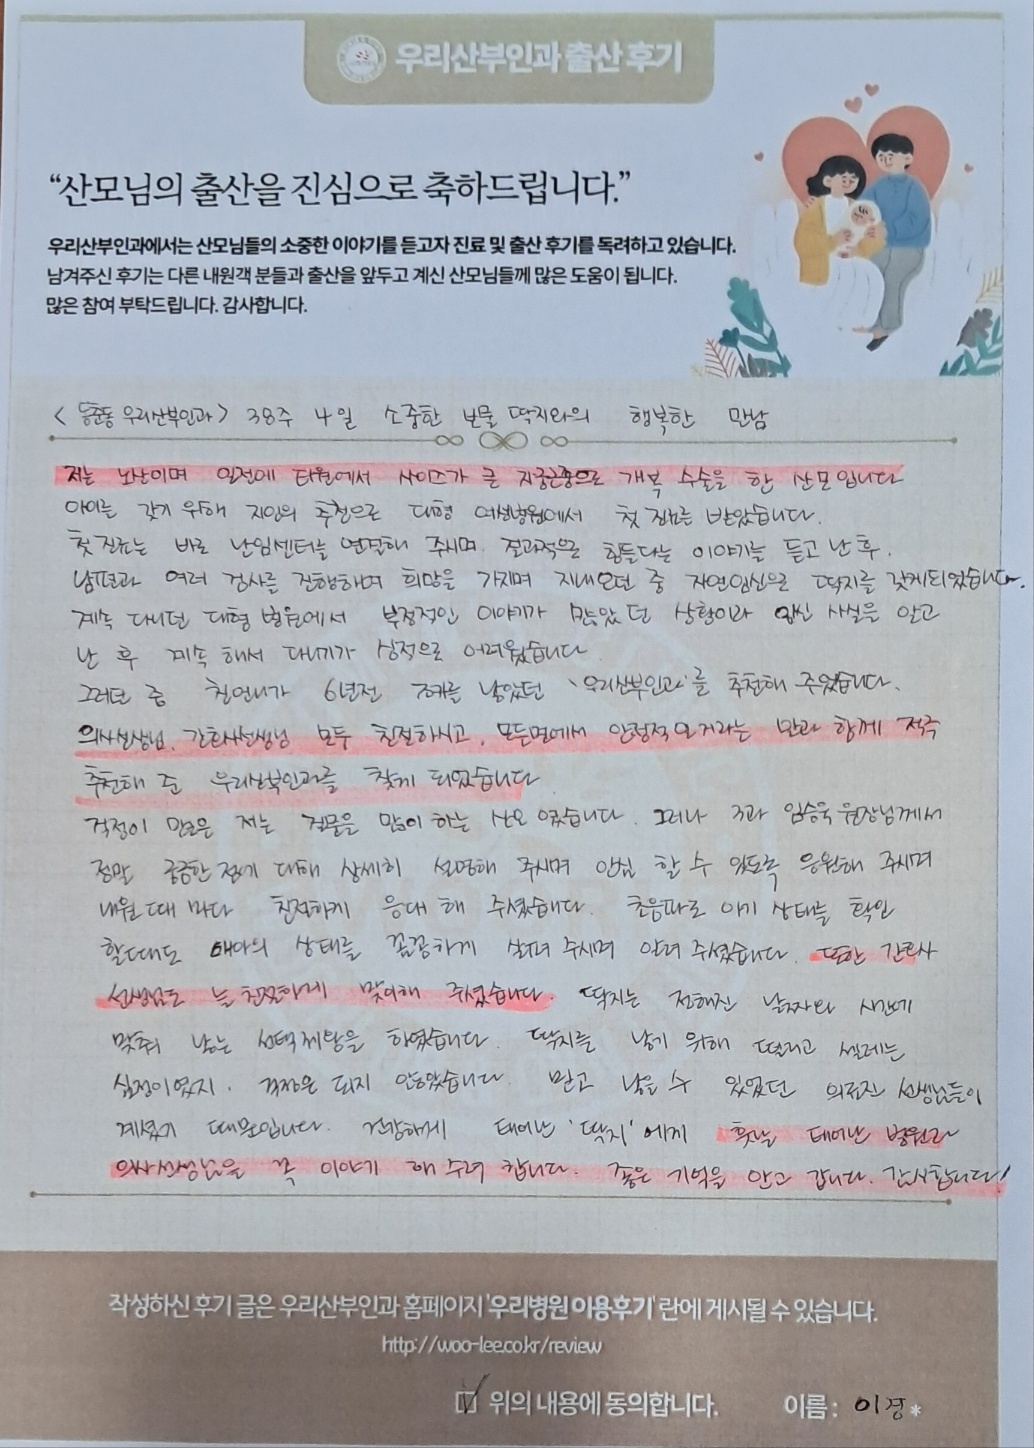 우리산부인과 출산 후기
“산모님의 출산을 진심으로 축하드립니다.”
우리산부인과에서는 산모님들의 소중한 이야기를 듣고자 진료 및 출산 후기를 독려하고 있습니다.
남겨주신 후기는 다른 내원객 분들과 출산을 앞두고 계신 산모님들께 많은 도움이 됩니다.
많은 참여 부탁드립니다. 감사합니다.
<동춘동 우리산부인과> 38주 4일 소중한 보물 딱지와의 행복한 만남
저는 노산이며 일전에 타원에서 사이즈가 큰 자궁근종으로 개복 수술을 한 산모입니다
아이를 갖기 위해 지인의 추천으로 대형 여성병원에서 첫 진료를 받았습니다.
첫 진료는 바로 난임센터를 연결해 주시며, 결과적으로 힘들다는 이야기를 듣고 난 후,
남편과 여러 검사를 진행하며 희망을 가지며 지내오던 중 자연임신으로 딱지를 갖게되었습니다.
계속 다니던 대형 병원에서 부정적인 이야기가 많았던 상황이라 임신 사실을 알고
난 후 계속 해서 다니기가 심적으로 어려웠습니다
그러던 중 친언니가 6년전 조카를 낳았던 '우리산부인과'를 추천해 주었습니다.
의사선생님, 간호사선생님 모두 친절하시고, 모든면에서 안정적일거라는 말과 함께 적극
추천해 준 우리산부인과를 찾게 되었습니다
걱정이 많은 저는 질문을 많이 하는 산모 였습니다. 그러나 3과 임승욱 원장님께서
정말 궁금한 점에 대해 상세히 설명해 주시며 안심 할 수 있도록 응원해 주시며
내원 때 마다 친절하게 응대 해 주셨습니다. 초음파로 아기 상태를 확인
할때도 태아의 상태를 꼼꼼하게 살펴 주시며 알려 주셨습니다. 또한 간호사
선생님도 늘 친절하게 맞이해 주셨습니다. 딱지는 정해진 날짜와 시간에
맞춰 낳는 선택제왕을 하였습니다. 딱지를 낳기 위해 떨리고 설레는
심정이였지, 걱정은 되지 않았습니다. 믿고 낳을 수 있었던 의료진 선생님들이
계셨기 때문입니다. 건강하게 태어난 '딱지'에게 훗날 태어난 병원과
의사선생님을 꼭 이야기 해 주려 합니다. 좋은 기억을 안고 갑니다. 감사합니다!
작성하신 후기 글은 우리산부인과 홈페이지 '우리병원 이용후기' 란에 게시될 수 있습니다.
http://woo-lee.co.kr/review
위의 내용에 동의합니다. 이름 : 이경*